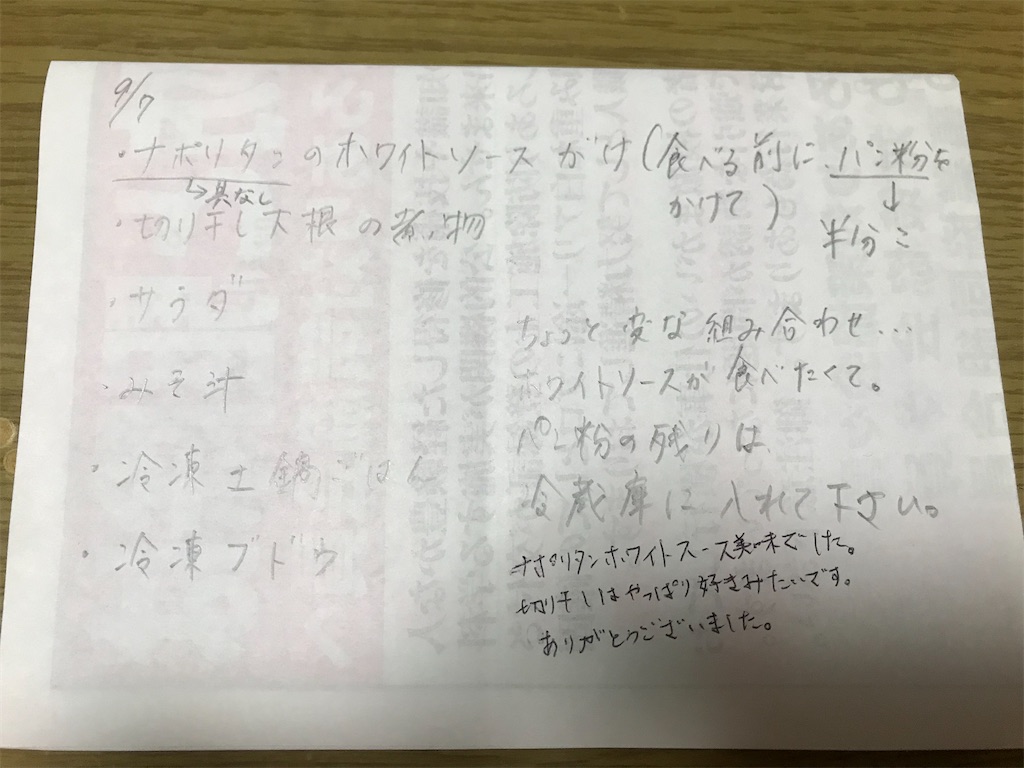 9/7
・ナポリタンのホワイトソースがけ(食べる前に、パン粉を
かけて)
↳具なし
↓
半分こ
・切り干し大根の煮物
・サラダ
・みそ汁
・冷凍土鍋ごはん
・冷凍ブドウ
ちょっと変な組み合わせ...
ホワイトソースが食べたくて。
パン粉の残りは
冷蔵庫に入れて下さい。
ナポリタンホワイトスース美味でした。
切り干しはやっぱり好きみたいです。
ありがとうございました。